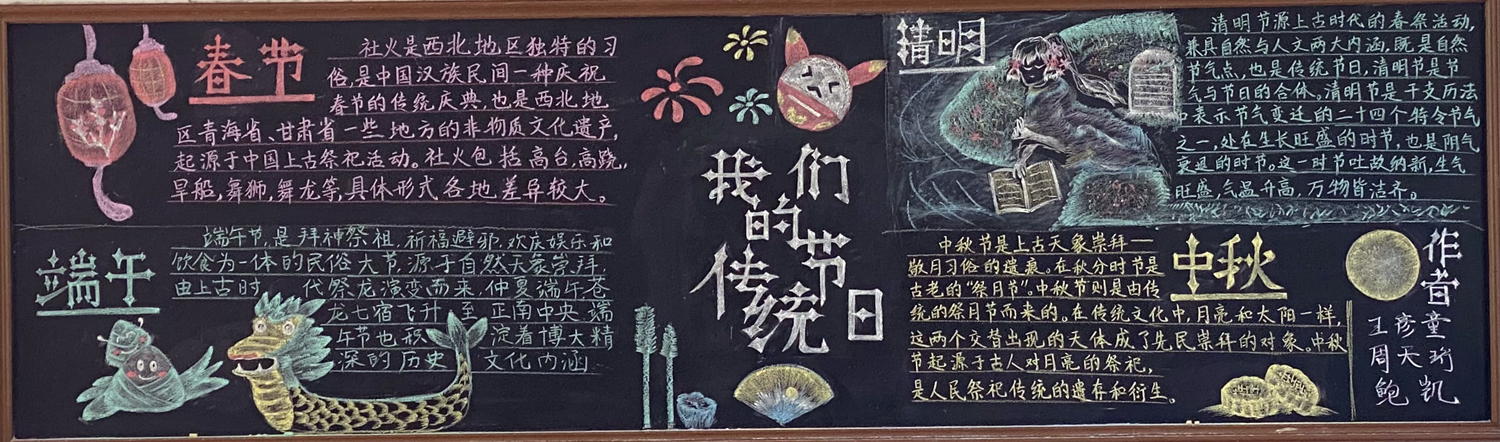 春节
社火是西北地区独特的习
俗,是中国汉族民间一种庆祝
春节的传统庆典,也是西北地
区青海省、甘肃省一些地方的非物质文化遗产,
起源于中国上古祭祀活动。社火包括高台,高跷,
旱船,舞狮,舞龙等,具体形式各地差异较大。
端午
端午节,是拜神祭祖,祈福避邪,欢庆娱乐和
饮食为一体的民俗大节,源于自然天象崇拜,
由上古时 代祭龙演变而来,仲夏端午苍
龙七宿飞升 至正南中央,端
午节也积 淀着博大精
深的历史 文化内涵
我们
的
传统节日
清明
清明节源上古时代的春祭活动,
兼具自然与人文两大内涵,既是自然
节气点,也是传统节日,清明节是节
气与节日的合体。清明节是干支历法
中表示节气变迁的二十四个特令节气
之一,处在生长旺盛的时节,也是阴气
衰退的时节。这一时节吐故纳新,生气
旺盛,气温升高,万物皆洁齐。
中秋
中秋节是上古天象崇拜一
敬月习俗的遗痕。在秋分时节是
古老的“祭月节”。中秋节则是由传
统的祭月节而来的。在传统文化中,月亮和太阳一样,
这两个交替出现的天体成了先民崇拜的对象。中秋
节起源于古人对月亮的祭祀,
是人民祭祀传统的遗存和衍生。
作者
王彦童
周天珩
鲍凯